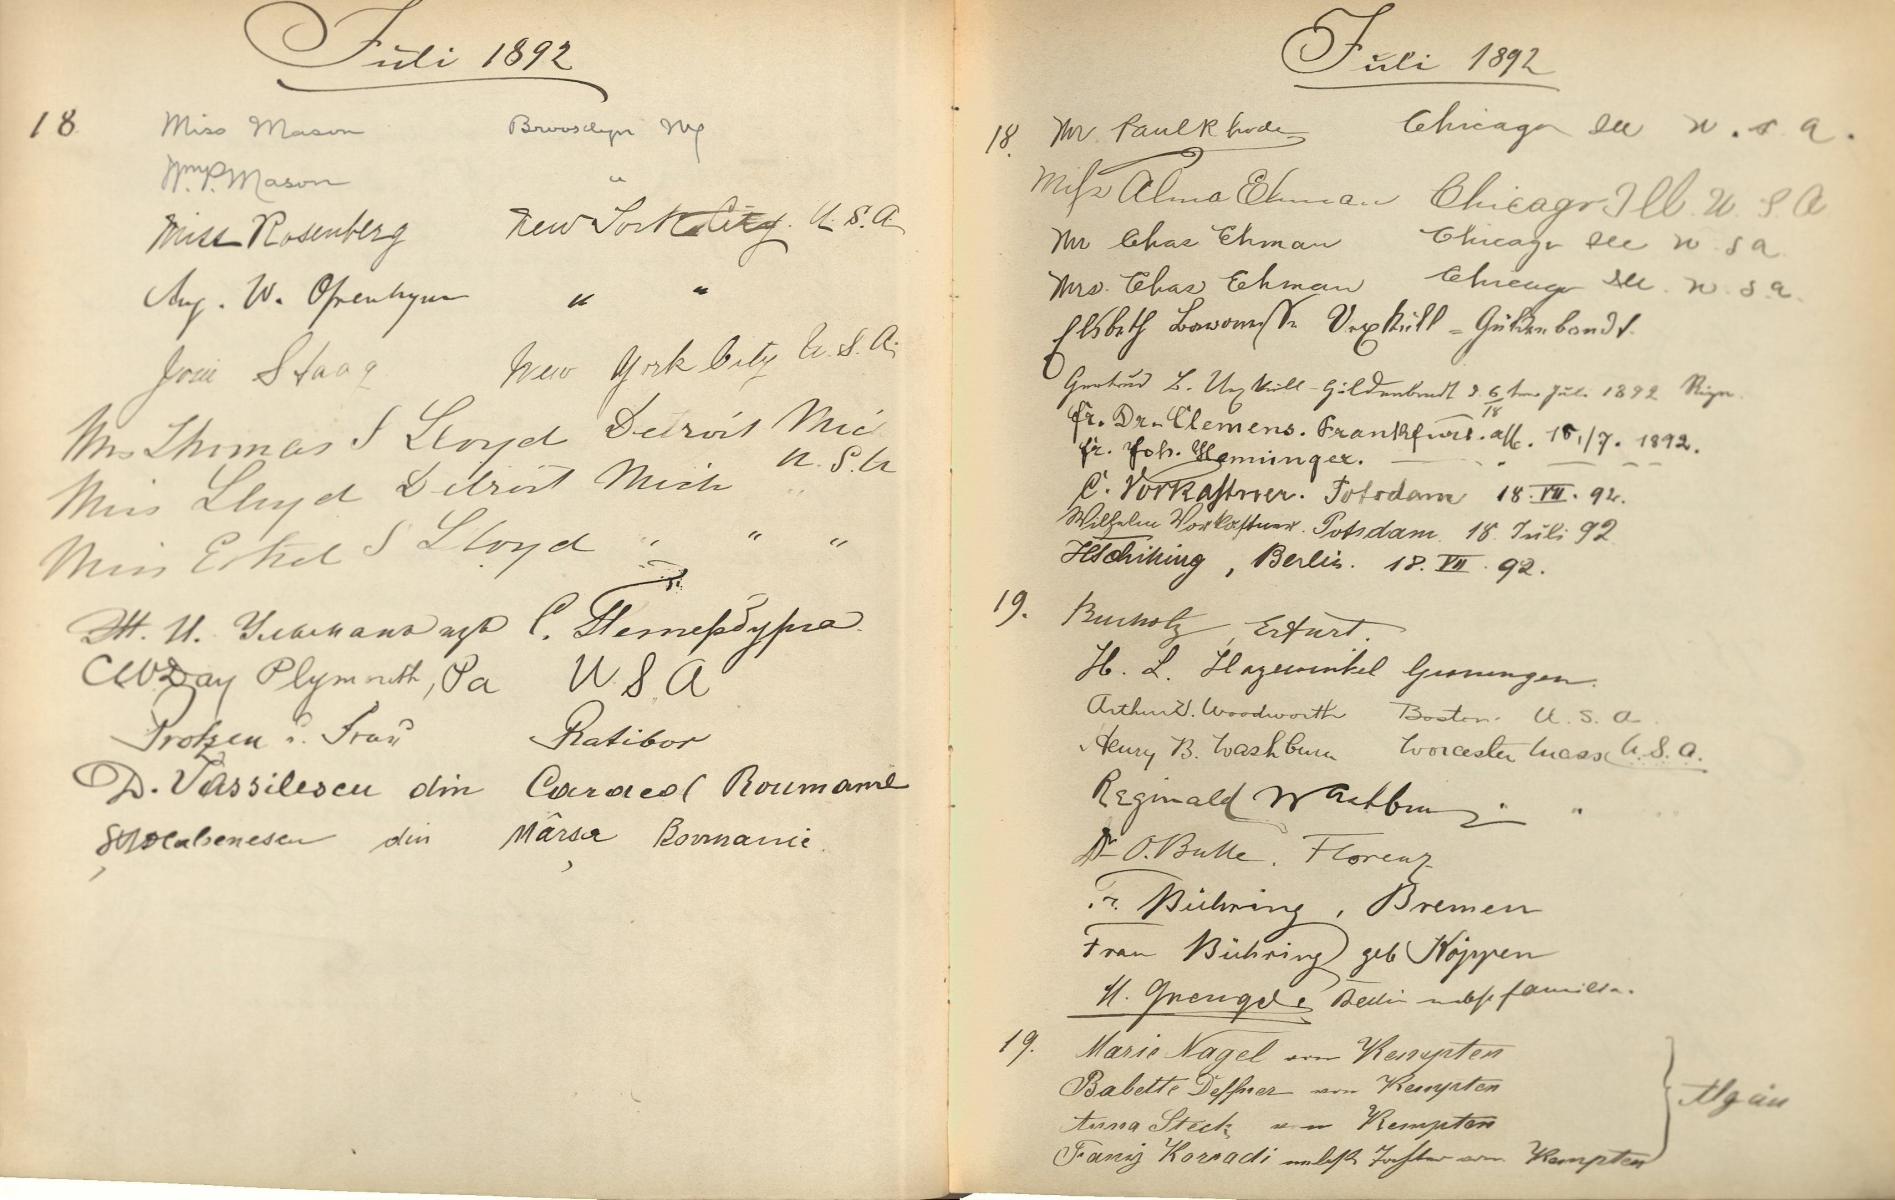 Juli 1892
18 Miss Mason Brooklyn NY
Wm. P. Mason "
Miss Rosenberg New York City. U.S.A.
Aug. W. " "
Staag New York City U.S.A.
Mrs Thomas S Lloyd Detroit Mic
U.S.A
Miss Lloyd Detroit Mich "
Miss Ethel S Lloyd " " "
И. С. Петербурга
Day Plymouth, Pa U S A
Protzen u. Frau Ratibor
D. Vassilescu din Caracal Roumanie
din Mârșa Roumanie
Juli 1892
18. Mr. Paul Rhode Chicago Ill U.S.A.
Miss Alma Ehman Chicago Ill. U.S.A
Mr Chas Ehman Chicago Ill U.S.A.
Mrs. Chas Ehman Chicago Ill. U.S.A.
Elsbeth Üxküll-Güldenbandt.
L. Üxküll-Güldenbandt Juli 1892 Riga.
Fr. Dr. Clemens. Frankfurt. a/M. 18/7. 1892.
Fr. Joh. Hemminger.
C. Vorkastner. Potsdam 18. VII. 92.
Wilhelm Vorkastner. Potsdam. 18. Juli 92
, Berlin. 18. VII. 92.
19. Bucholtz, Erfurt.
H. L. Hazewinkel Groningen.
Arthur V. Woodworth Boston. U.S.A.
Henry B. Washburn Worcester Mass U.S.A.
Reginald Washburn " "
Dr O. Butte. Florenz
Fr. Bühring, Bremen
Frau Bühring geb Köppen
Berlin nebst Familie.
19. Marie Nagel von Kempten
Babette Deffner von Kempten
Algäu
Anna Steck von Kempten
Fanny Korradi nebst Tochter von Kempten